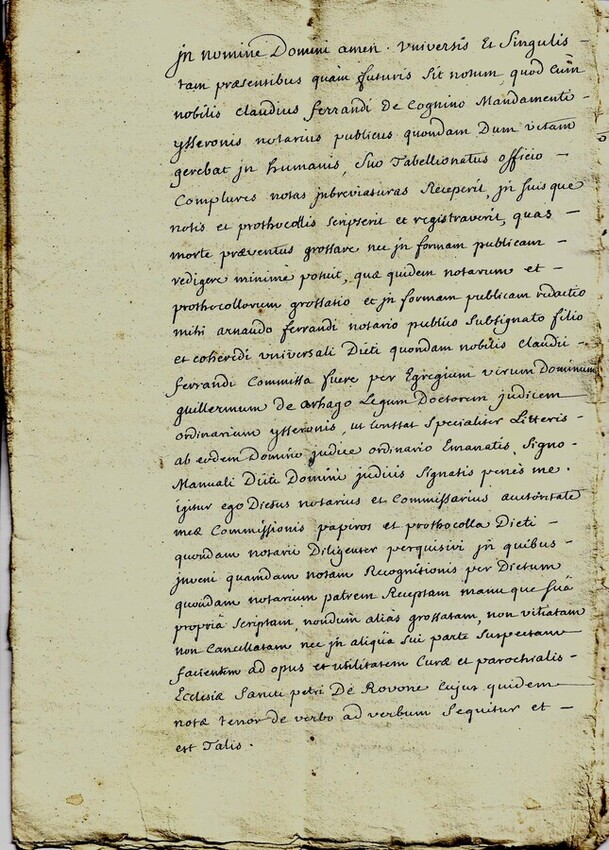 jn nomine Domini amen. Vniversis Et Singulis –
tam præsentibus quàm futuris sit notum, quod Cùm
nobilis claudius ferrandi De Cognino Mandamenti –
ysseronis notarius publicus quondam Dum vitam
gerebat jn humanis, Suo Tabellionatus officio –
Complures notas jnbreviaturas Receperit, jn suis que
notis et prothocollis scripserit et registraverit, quas –
morte præventus grossare nec jn formam publicam –
redigere minimè potuit, quæ quidem notarum et –
prothocollorum grossatio et jn formam publicam redactio
mihi arnaudo ferrandi notario publico Subsignato filio
et coheredi vniversali Dicti quondam nobilis claudii –
ferrandi Commissa fuere per Egregium virum Dominum
guillermum de arhago Legum Doctorem judicem
ordinarium ysseronis, ut Constat Specialiter Litteris –
ab eodem Domino judice ordinario Emanatis, Signo –
Manuali Dicti Domini judicis Signatis penès me.
igitur ego Dictus notarius et Commissarius autoritate
meæ Commissionis papiros et prothocolla Dicti –
quondam notarii Diligenter perquisivi jn quibus –
jnveni quamdam notam Recognitionis per Dictum
quondam notarium patrem Receptam manu que suâ
propriâ scriptam, nondum aliàs grossatam, non vitiatam
non Cancellatam nec jn aliquâ sui parte Suspectam
facientem ad opus et utilitatem Curæ et parochialis –
Ecclesiæ Sancti petri De Rovone Cujus quidem
notæ tenor de verbo ad verbum Sequitur et –
est Talis.